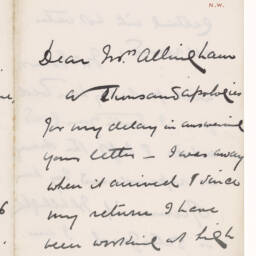 N.W.
Dear Mrs Allingham
A thousand apologies
for my delay in answering
your letter – I was away
when it arrived & since
my return I have
been working at high